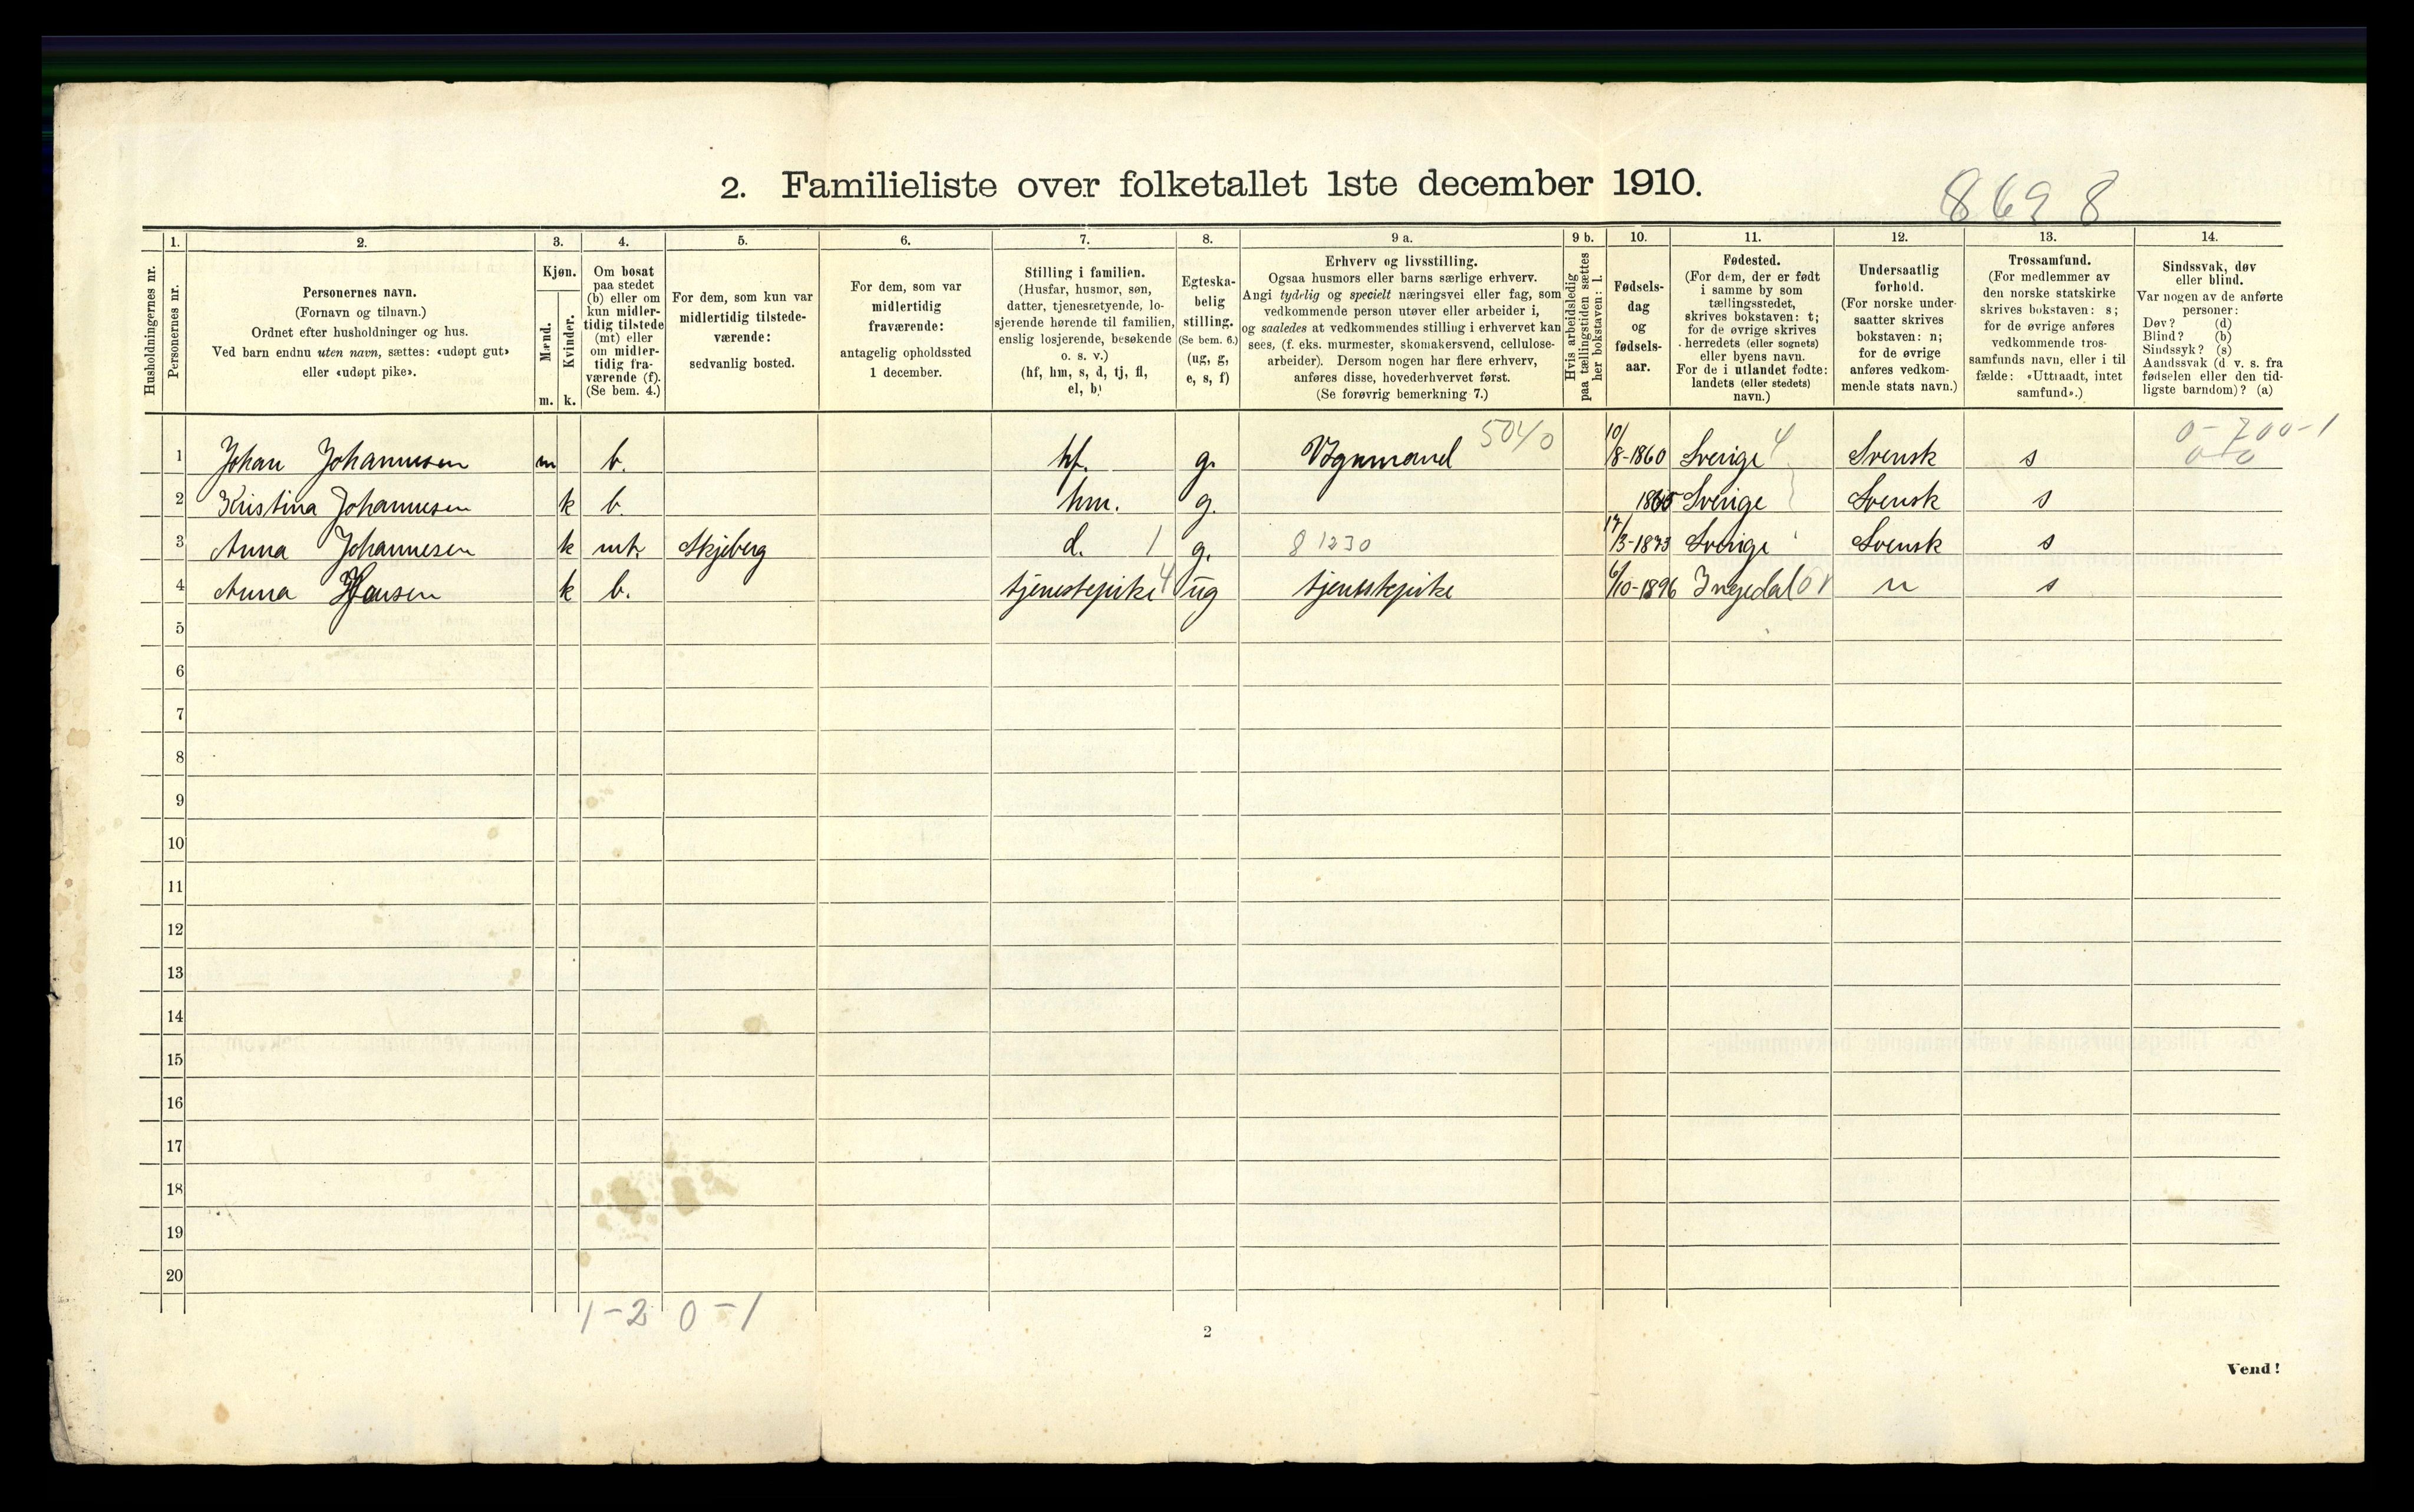 2. Familieliste over folketallet 1ste december 1910.
8698
1. 2. 3. 4. 5. 6. 7. 8. 9 a. 9 b. 10. 11. 12. 13. 14.
Husholdningernes nr.
Personernes nr.
Personernes navn.
(Fornavn og tilnavn.)
Ordnet efter husholdninger og hus.
Ved barn endnu uten navn, sættes: «udøpt gut»
eller «udøpt pike».
Kjøn.
Mænd.
Kvinder.
m. k.
Om bosat
paa stedet
(b) eller om
kun midler-
tidig tilstede
(mt) eller
om midler-
tidig fra-
værende (f).
(Se bem. 4.)
For dem, som kun var
midlertidig tilstede-
værende:
sedvanlig bosted.
For dem, som var
midlertidig
fraværende:
antagelig opholdssted
1 december.
Stilling i familien.
(Husfar, husmor, søn,
datter, tjenestetyende, lo-
sjerende hørende til familien,
enslig losjerende, besøkende
o. s. v.)
(hf, hm, s, d, tj, fl,
el, b)
Egteska-
belig
stilling.
(Se bem. 6.)
(ug, g,
e, s, f)
Erhverv og livsstilling.
Ogsaa husmors eller barns særlige erhverv.
Angi tydelig og specielt næringsvei eller fag, som
vedkommende person utøver eller arbeider i,
og saaledes at vedkommendes stilling i erhvervet kan
sees, (f. eks. murmester, skomakersvend, cellulose-
arbeider). Dersom nogen har flere erhverv,
anføres disse, hovederhvervet først.
(Se forøvrig bemerkning 7.)
Hvis arbeidsledig
paa tællingstiden sættes
her bokstaven: l.
Fødsels-
dag
og
fødsels-
aar.
Fødested.
(For dem, der er født
i samme by som
tællingsstedet,
skrives bokstaven: t;
for de øvrige skrives
herredets (eller sognets)
eller byens navn.
For de i utlandet fødte:
landets (eller stedets)
navn.)
Undersaatlig
forhold.
(For norske under-
saatter skrives
bokstaven: n;
for de øvrige
anføres vedkom-
mende stats navn.)
Trossamfund.
(For medlemmer av
den norske statskirke
skrives bokstaven: s;
for de øvrige anføres
vedkommende tros-
samfunds navn, eller i til
fælde: «Uttraadt, intet
samfund».)
Sindssvak, døv
eller blind.
Var nogen av de anførte
personer:
Døv? (d)
Blind? (b)
Sindssyk? (s)
Aandssvak (d. v. s. fra
fødselen eller den tid-
ligste barndom)? (a)
1 Johan Johannesen m b. hf. g. Vognmand 5040 10/8-1860 Sverige 4 Svensk s
2 Kristina Johannesen k b. hm. g. Sverige Svensk s
3 Anna Johannesen k mt. Skjeberg d. 1 g. 81230 17/3-1873 Sverige Svensk s
4 Anna Hansen k b. tjenestepike 4 ug tjenestepike 6/10-1896 Ingedal n s
5
6
7
8
9
10
11
12
13
14
15
16
17
18
19
20
1-2 0-1
2
Vend!